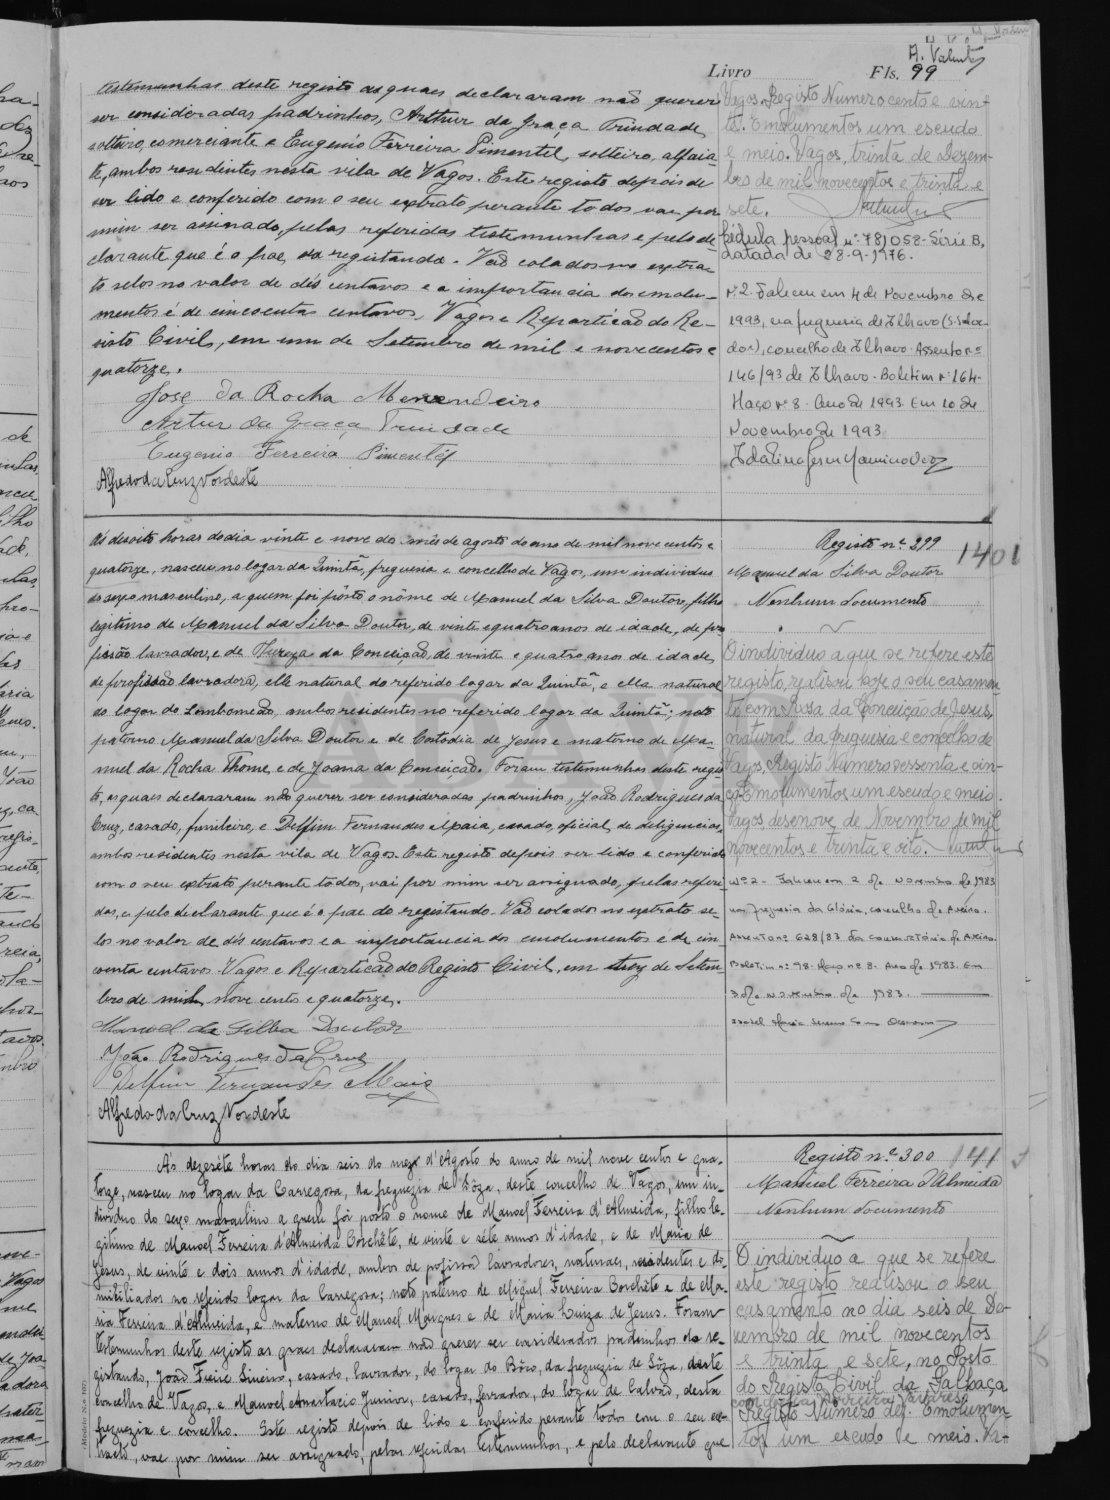 A. Valente
Livro Fls. 99
testemunhas deste registo as quaes declararam não querer
ser consideradas padrinhos, Arthur da Graça Trindade,
solteiro, comerciante e Eugénio Ferreira Pimentel, solteiro, alfaia
te, ambos residentes nesta vila de Vagos. Este registo depois de
ser lido e conferido com o seu extrato perante todos vae por
mim ser assinado, pelas referidas testemunhas e pelo de
clarante que é o pae da registanda. Vão colados no extra
to selos no valor de dés centavos e a importancia dos emolu-
mentos é de cincoenta centavos. Vagos e Repartição do Re-
gisto Civil, em um de Setembro de mil e novecentos e
quatorze.
José da Rocha Merendeiro
Artur da Graça Trindade
Eugenio Ferreira Pimentel
Alfredo da Cruz Nordeste
Vagos. Registo Numero cento e vin-
te. Emolumentos um escudo
e meio. Vagos, trinta de Dezem-
bro de mil novecentos e trinta e
sete.
Cédula pessoal nº 781058-Série B,
datada de 28-9-1976.
Nº 2. Faleceu em 4 de Novembro de
1993, na freguesia de Ilhavo (S. Salva-
dor), concelho de Ilhavo. Assento nº
146/93 de Ilhavo - Boletim nº 164-
Maço nº 8. Ano de 1993. Em 10 de
Novembro de 1993
Às desoito horas do dia vinte e nove do mês de agosto do ano de mil nove centos e
quatorze, nasceu no logar da Quintã, freguesia e concelho de Vagos, um individuo
do sexo masculino, a quem foi pôsto o nôme de Manuel da Silva Doutor, filho
legitimo de Manuel da Silva Doutor, de vinte e quatro anos de idade, de pro
fissão lavrador, e de Thereza da Conceição, de vinte e quatro anos de idade,
de profissão lavradora, elle natural do referido logar da Quintã, e ella natural
do logar do Lombomeão, ambos residentes no referido logar da Quintã; neto
paterno Manuel da Silva Doutor e de Custodia de Jesus e materno de Ma-
nuel da Rocha Thome, e de Joana da Conceição. Foram testemunhas deste regis
to, as quaes declararam não querer ser consideradas padrinhos, João Rodrigues da
Cruz, casado, funileiro, e Delfim Fernandes Maia, casado, oficial de deligencias,
ambos residentes nesta vila de Vagos. Este registo depois ser lido e conferido
com o seu extrato perante todos, vai por mim ser assignado, pelas referi
das, e pelo declarante que é o pae do registando. Vão colados no extrato se-
los no valor de dés centavos e a importancia dos emolumentos é de cin
coenta centavos. Vagos e Repartição do Registo Civil, em trez de Setem
bro de mil nove cento e quatorze.
Manoel da Silba Doutor
João Rodrigues da Cruz
Delfim Fernandes Maia
Alfredo da Cruz Nordeste
Registo n.º 299
1401
Manuel da Silva Doutor
Nenhum documento
O individuo a que se refere este
registo, realisou hoje o seu casamen
to com Rosa da Conceição de Jesus,
natural da freguesia e concelho de
Vagos, Registo Numero sessenta e cin-
co. Emolumentos um escudo e meio.
Vagos, desenove de Novembro de mil
novecentos e trinta e oito.
Nº 2 - Faleceu em 2 de Novembro de 1983
na freguesia da Glória, concelho de Aveiro.
Assento nº 628/83 da Conservatória de Aveiro.
Boletim nº 98. Maço nº 8. Ano de 1983. Em
3 de Novembro de 1983.
Ás dezeséte horas do dia seis do mez d'Agosto do anno de mil nove centos e qua-
torze, nasceu no logar da Carregosa, da freguezia de Sôza, deste concelho de Vagos, um in-
dividuo do sexo masculino a quem foi posto o nome de Manoel Ferreira d'Almeida, filho le-
gitimo de Manoel Ferreira d'Almeida Corchête, de vinte e séte annos d'idade, e de Maria de
Jesus, de vinte e dois annos d'idade, ambos de profissão lavradores, naturaes, residentes e do-
miciliados no referido logar da Carregosa; neto paterno de Miguel Ferreira Corchête e de Ma-
ria Ferreira d'Almeida, e materno de Manoel Marques e de Maria Luiza de Jesus. Foram
testemunhas deste registo as quaes declararam não querer ser consideradas padrinhos do re-
gistando, João Freire Sineiro, casado, lavrador, do logar do Bôco, da freguezia de Sôza, deste
concelho de Vagos, e Manoel Anastacio Junior, casado, ferrador, do logar de Calvão, desta
freguezia e concelho. Este registo depois de lido e conferido perante todos com o seu ex-
tracto, vae por mim ser assignado, pelas referidas testemunhas, e pelo declarante que
Registo n.º 300
141
Manuel Ferreira d'Almeida
Nenhum documento
O individuo a que se refere
este registo realisou o seu
casamento no dia seis de De-
zembro de mil novecentos
e trinta e sete, no Posto
do Registo Civil da Palhaça
Registo Numero dez. Emolumen-
tos um escudo e meio. Va-